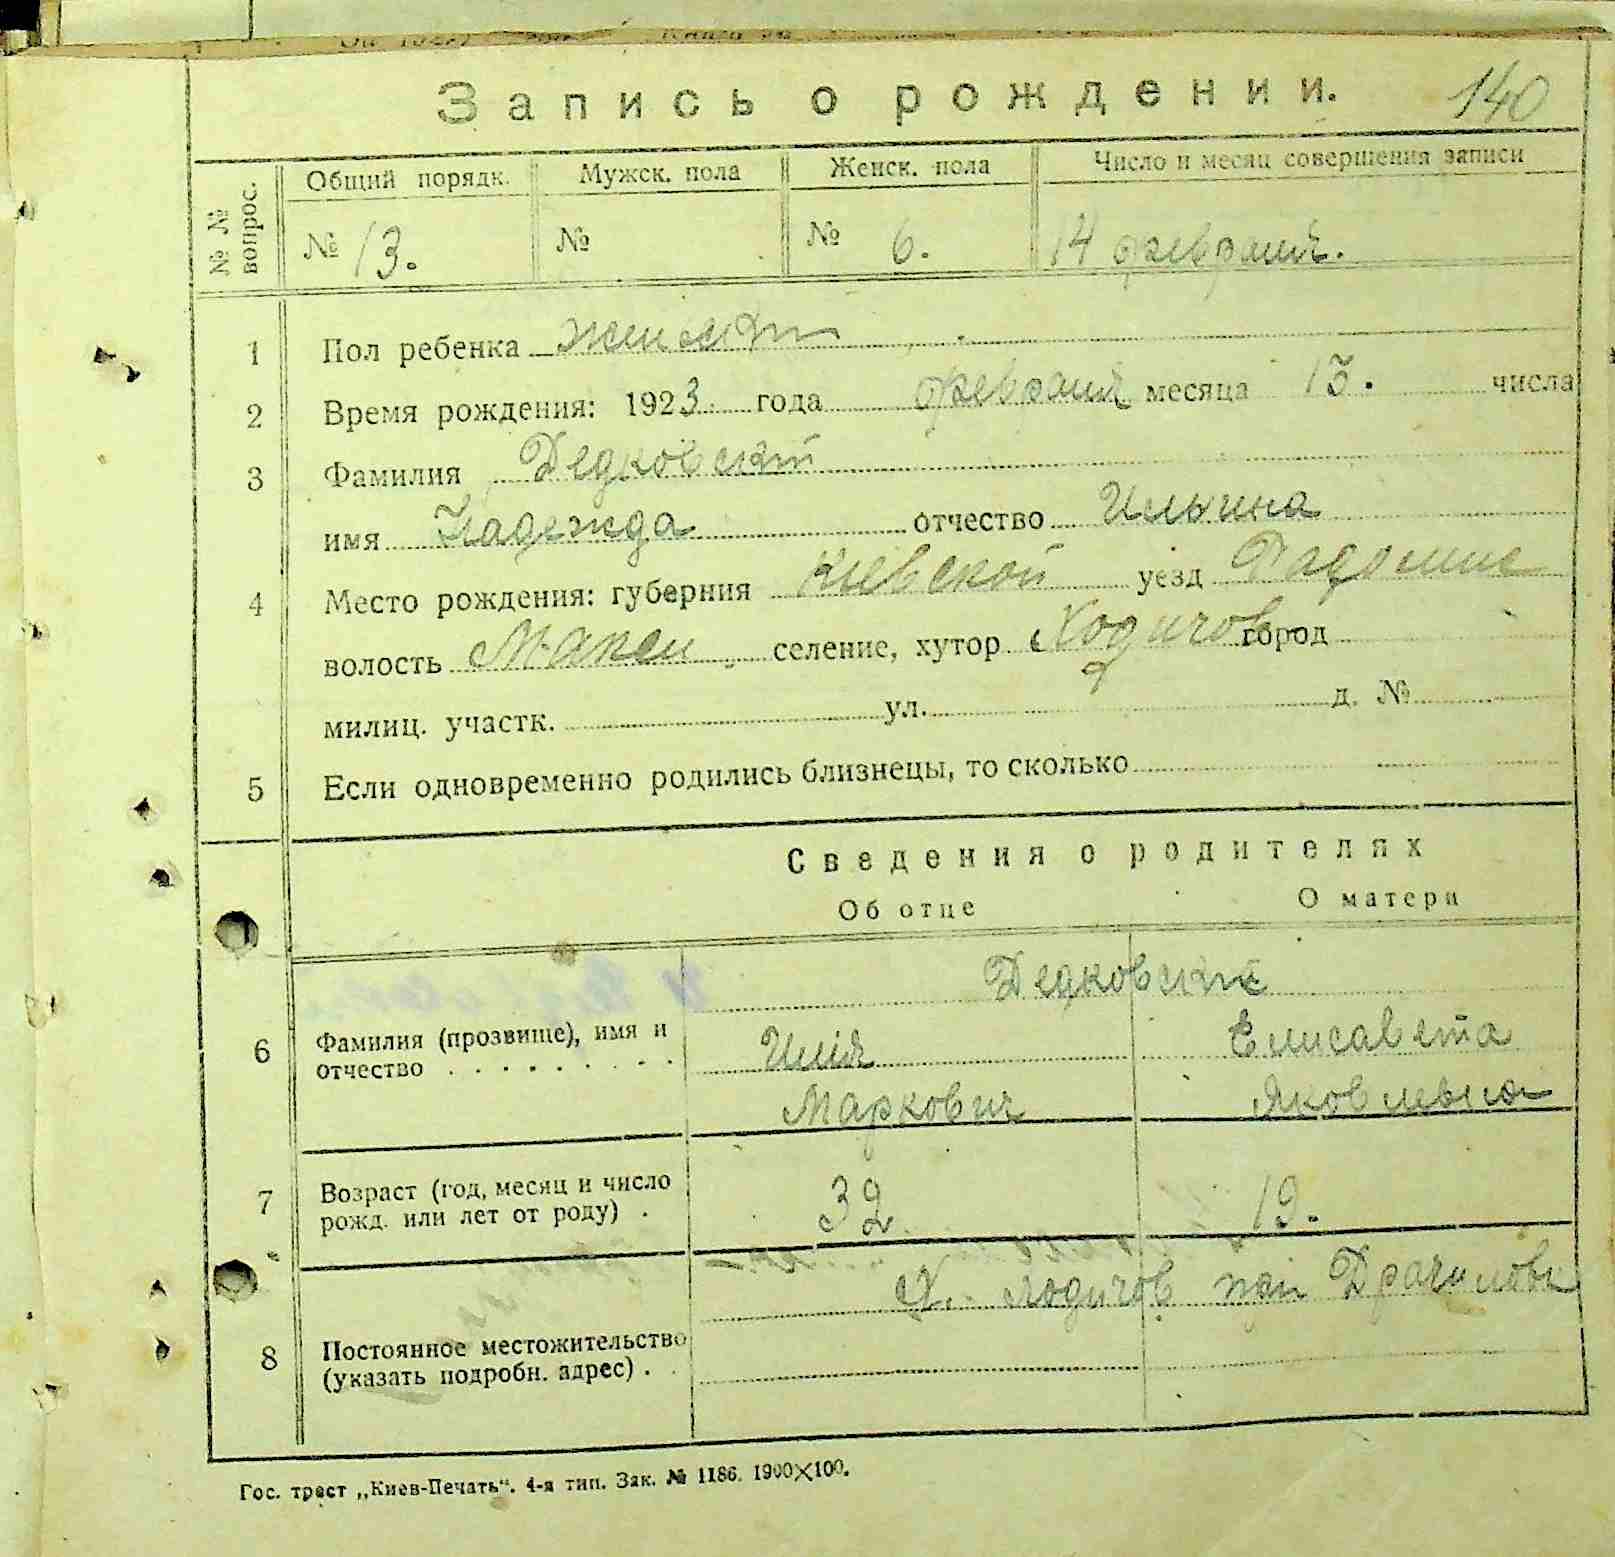 Запись о рождении. 140
№ № вопрос. Общий порядк. Мужск. пола Женск. пола Число и месяц совершения записи
№ 13. № № 6. 14 февраля.
1 Пол ребенка
2 Время рождения: 1923 года февраля месяца 13. числа
3 Фамилия Дедковский
имя Надежда отчество Ильина
4 Место рождения: губерния Киевской уезд Радомис
волость Макси селение, хутор Ходичов город
милиц. участк. ул. д. №
5 Если одновременно родились близнецы, то сколько
Сведения о родителях
Об отце О матери
Дедковские
6 Фамилия (прозвище), имя и отчество Илія Елисавета
Маркович Яковлевна
7 Возраст (год, месяц и число рожд. или лет от роду) . 32 19.
Х. при
8 Постоянное местожительство (указать подробн. адрес) .
Гос. трест „Киев-Печать“. 4-я тип. Зак. № 1186. 1900×100.